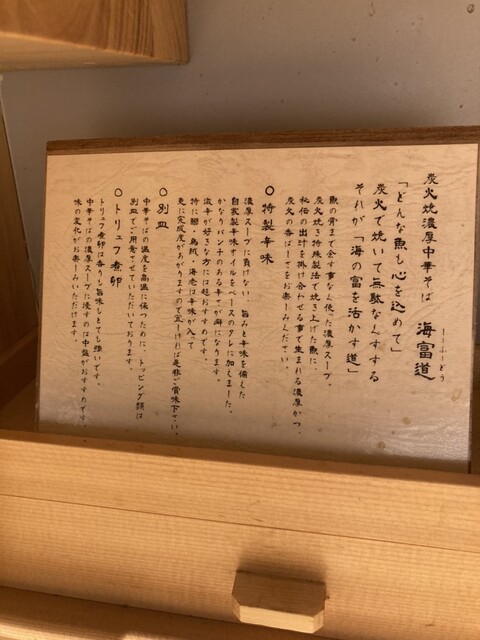 炭火焼濃厚中華そば 海富道
しーふーどう
「どんな魚も心を込めて」
炭火で焼いて無駄なくする
それが「海の富を活かす道」
魚の骨まで余す事なく使った濃厚スープ。
炭火焼き特殊製法で焼き上げた魚に、
秘伝の出汁を掛け合わせる事で生まれる濃厚かつ、
炭火の香ばしさをお楽しみください。
○特製辛味
濃厚スープに負けない、旨みと辛味を備えた
自家製辛味オイルをベースのタレに加えました。
かなりパンチのある辛さが癖になります。
激辛が好きな方には超おすすめです。
特に
・烏賊・海老は辛味が入って
更に完成度があがりますので宜しければ是非ご賞味下さい。
○別皿
中華そばの温度を高温に保つために、トッピング類は
別皿でご用意させていただいております。
○トリュフ煮卵
トリュフ煮卵は香りも旨味もとても強いです。
中華そばの濃厚スープに浸すのは中盤がおすすめです。
味の変化がお楽しみいただけます。